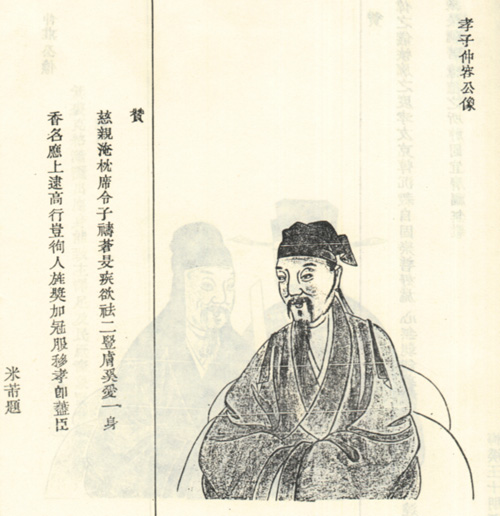 孝子仲容公像
贊
慈親淹枕席令子禱蒼旻疾欲祛二豎膚奚愛一身
香名應上逮高行豈徇人旌獎加冠服移孝卽藎臣
米芾題